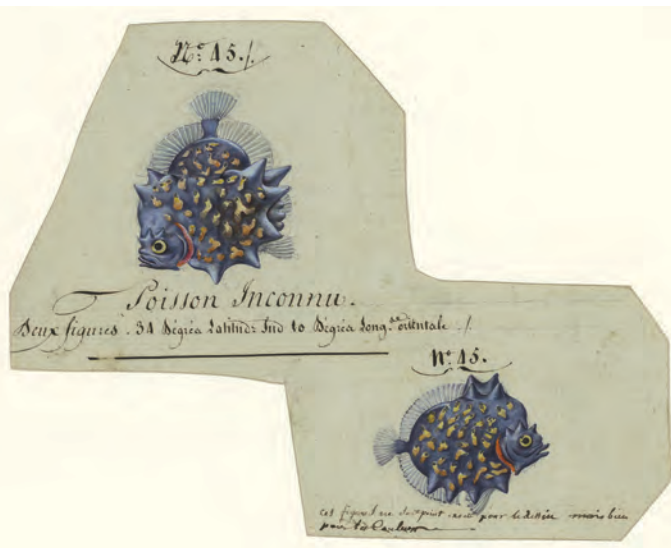 N.º 45./.
Poisson Inconnu.
Deux figures. 34 Dégréa Latitude Sud 10 Dégréa Long.de orientale ./.
Nº 45.
ces figures ne sont point pour le dessin mais bien
pour les Couleurs